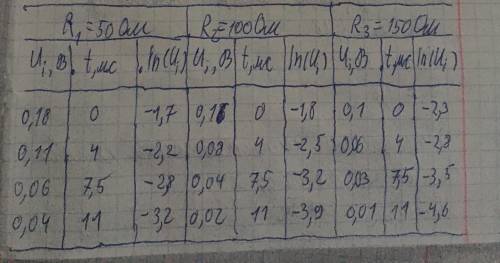 R₁=50 Ом R₂=100 Ом R₃=150 Ом
U₁,В t,мс ln(U₁) U₁,В t,мс ln(U₁) U₁,В t,мс ln(U₁)
0,18 0 -1,7 0,16 0 -1,8 0,1 0 -2,3
0,11 4 -2,2 0,08 4 -2,5 0,06 4 -2,8
0,06 7,5 -2,8 0,04 7,5 -3,2 0,03 7,5 -3,5
0,04 11 -3,2 0,02 11 -3,9 0,01 11 -4,6